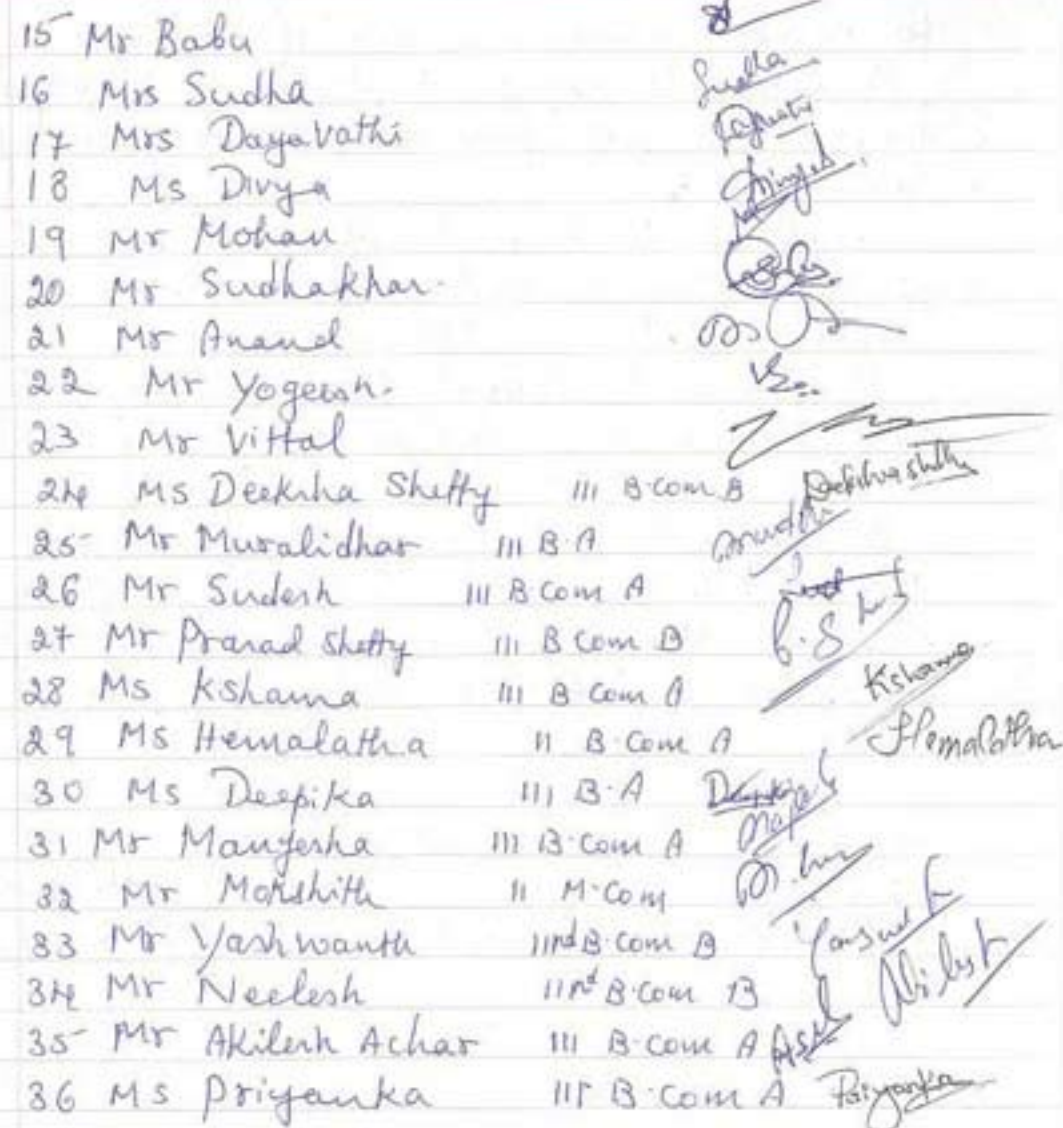 15 Mr Babu
16 Mrs Sudha Sudha
17 Mrs DayaVathi
18 Ms Divya
19 Mr Mohan
20 Mr Sudhakhar.
21 Mr Anand
22 Mr Yogeesh.
23 Mr Vittal
24 Ms Deeksha Shetty III B.Com B Deekshashetty
25 Mr Muralidhar III B.A
26 Mr Sudesh III B Com A
27 Mr Prasad Shetty III B Com B
28 Ms Kshama III B Com A Kshama
29 Ms Hemalatha II B.Com A Hemalatha
30 Ms Deepika III B.A
31 Mr Manjesha III B.Com A
32 Mr Mokshith II M.Com
33 Mr Yashwanth IInd B.Com B
34 Mr Neelesh IInd B.Com B
35 Mr Akilesh Achar III B.Com A
36 Ms Priyanka III B.Com A Priyanka